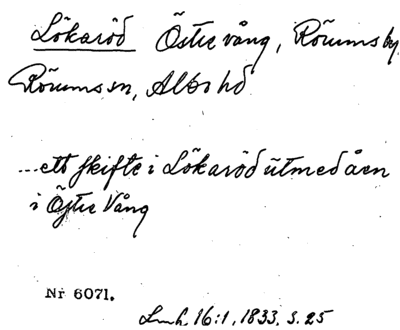 Lökaröd Östre vång, Rörums by,
Rörums sn, Albo hd
...ett skifte i Lökaröd utmed åen
i Östre Vång
Nr 6071.
Lmh. 16:1, 1833. s. 25